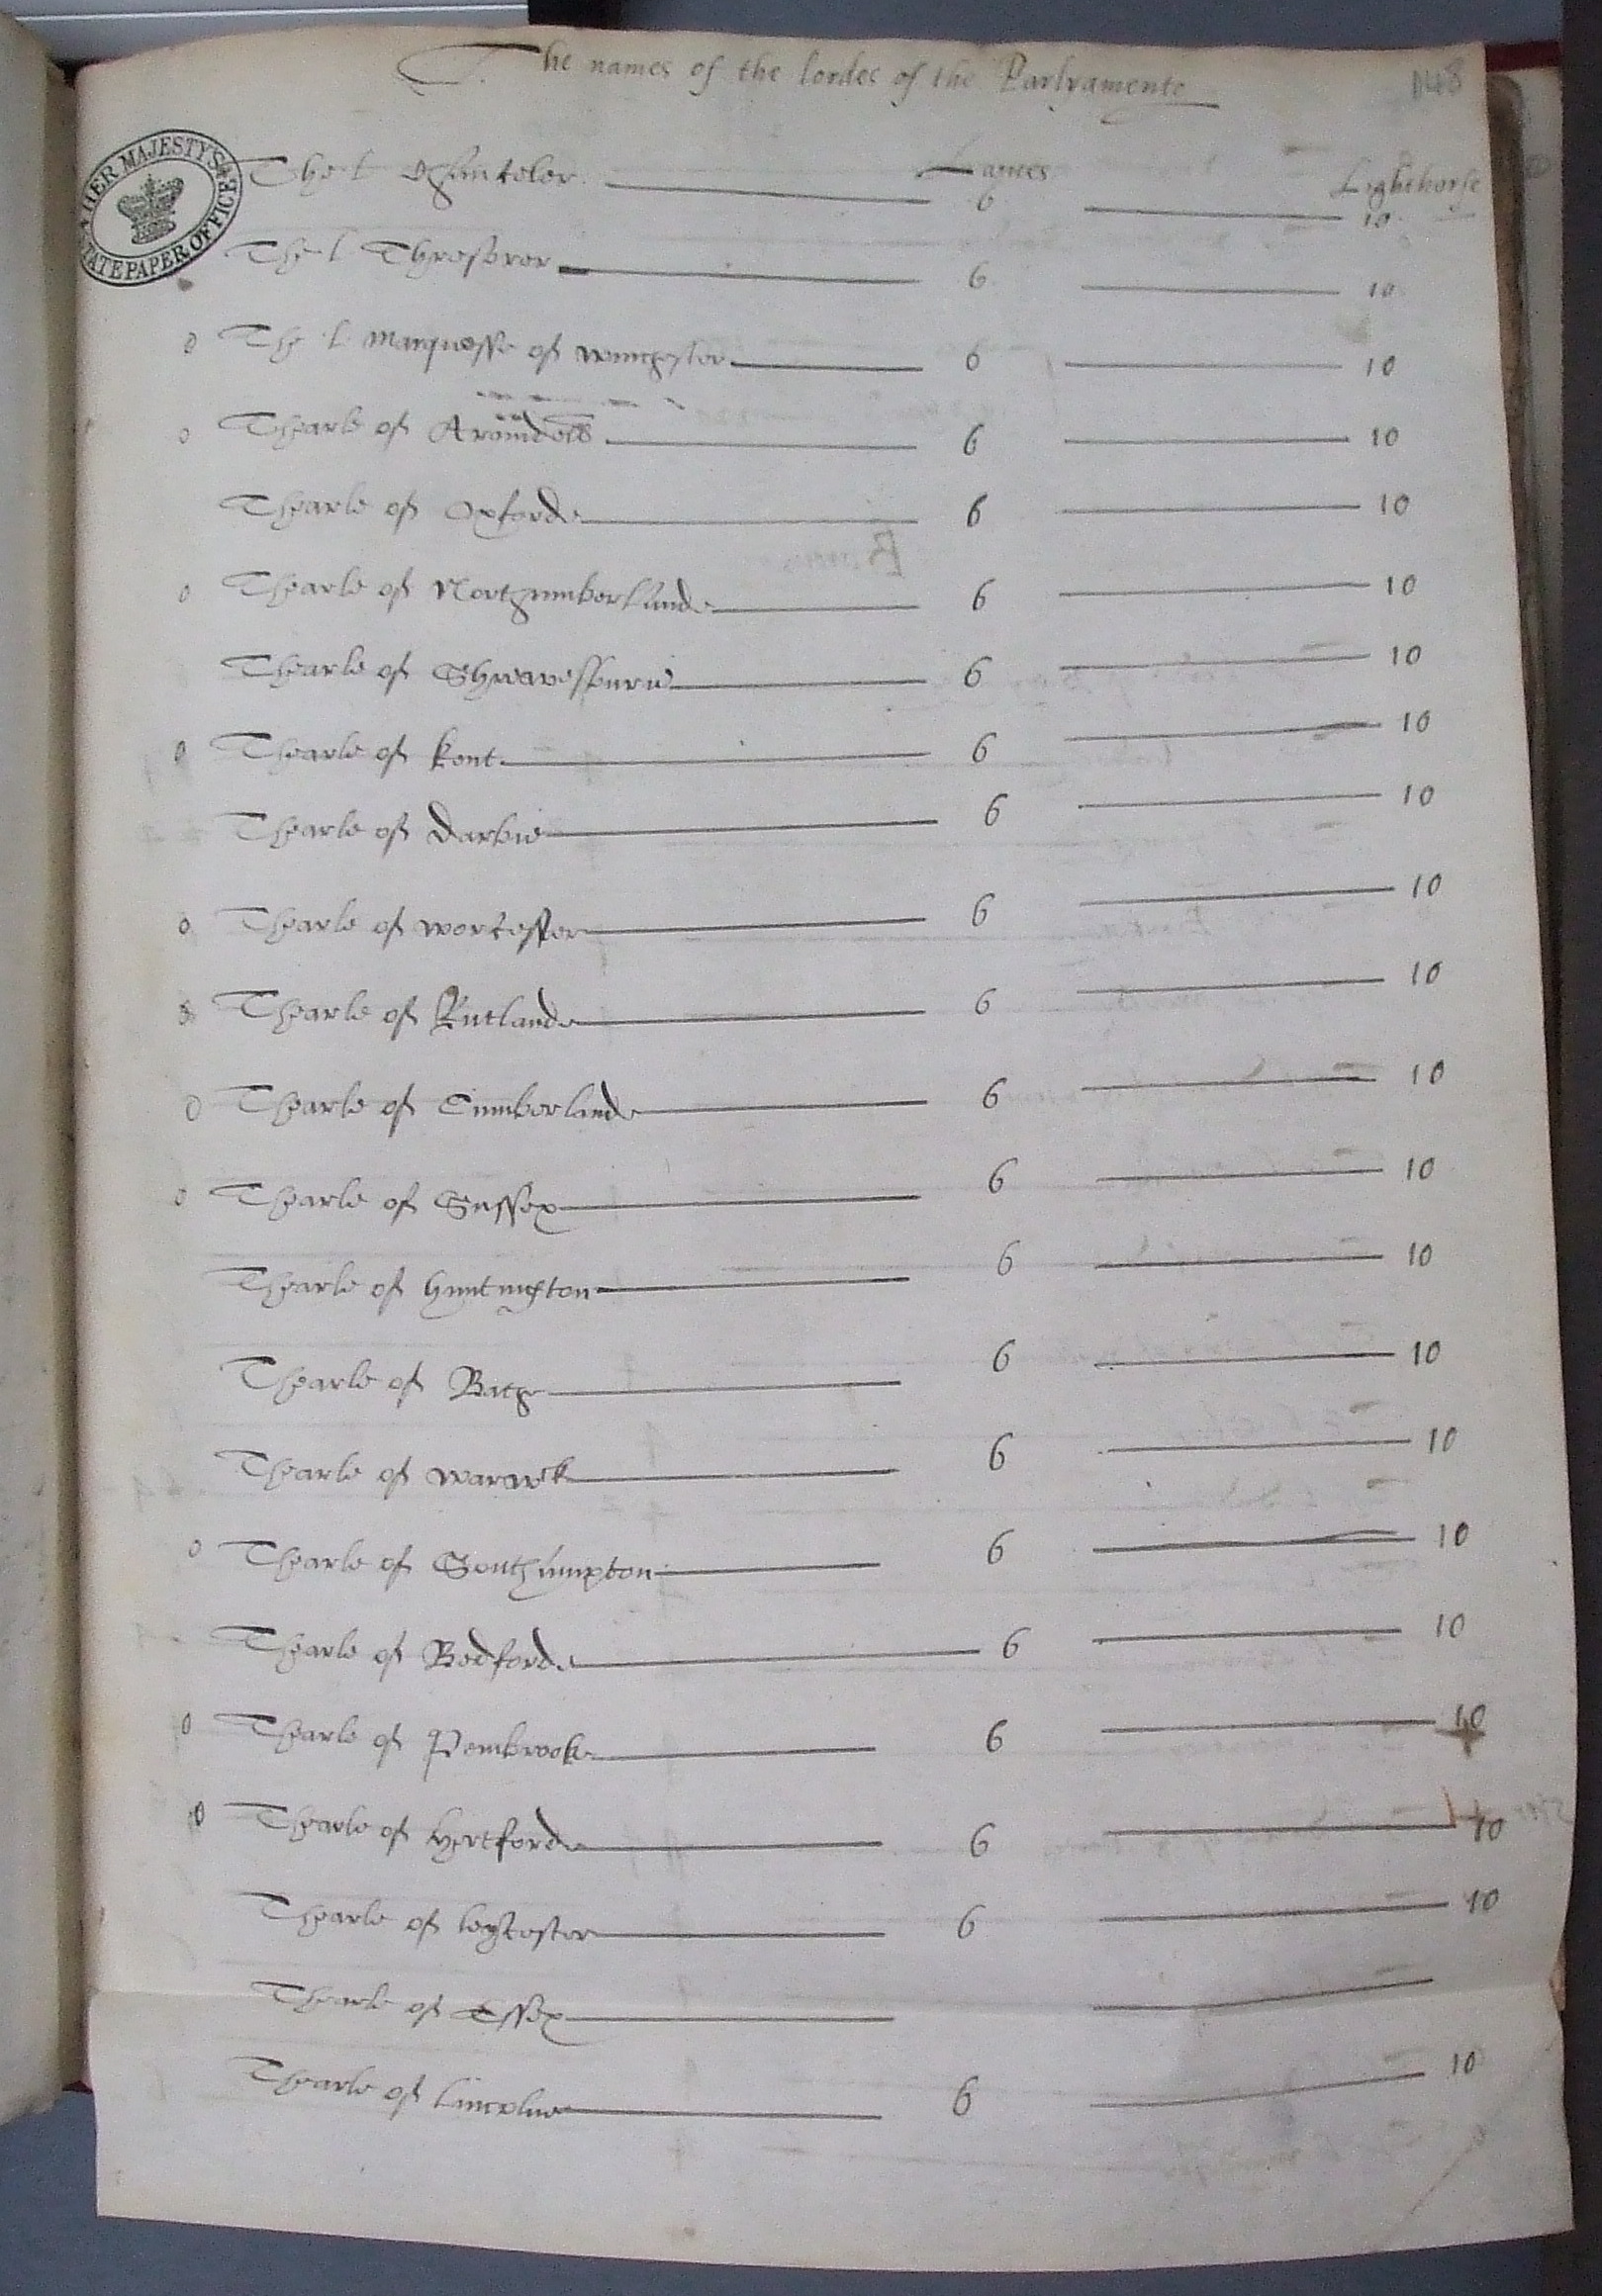 The names of the lordes of the Parlyamente
148
Launces Lighthorse
HER MAJESTY'S STATE PAPER OFFICE
The l Chanceler 6 10
The l Thresorer 6 10
o The l Marquesse of winchester 6 10
o Thearle of Aroundell 6 10
Thearle of Oxforde 6 10
o Thearle of Northumberlande 6 10
Thearle of Shrewesburie 6 10
o Thearle of kent 6 10
Thearle of Darbie 6 10
o Thearle of worcester 6 10
o Thearle of Rutlande 6 10
o Thearle of Cumberlande 6 10
o Thearle of Sussex 6 10
Thearle of huntington 6 10
Thearle of Bathe 6 10
Thearle of warwik 6 10
o Thearle of Southampton 6 10
Thearle of Bedforde 6 10
o Thearle of Pembrooke 6 10
o Thearle of hertforde 6 10
Thearle of leycester 6 10
Thearle of Essex
Thearle of lincolne 6 10